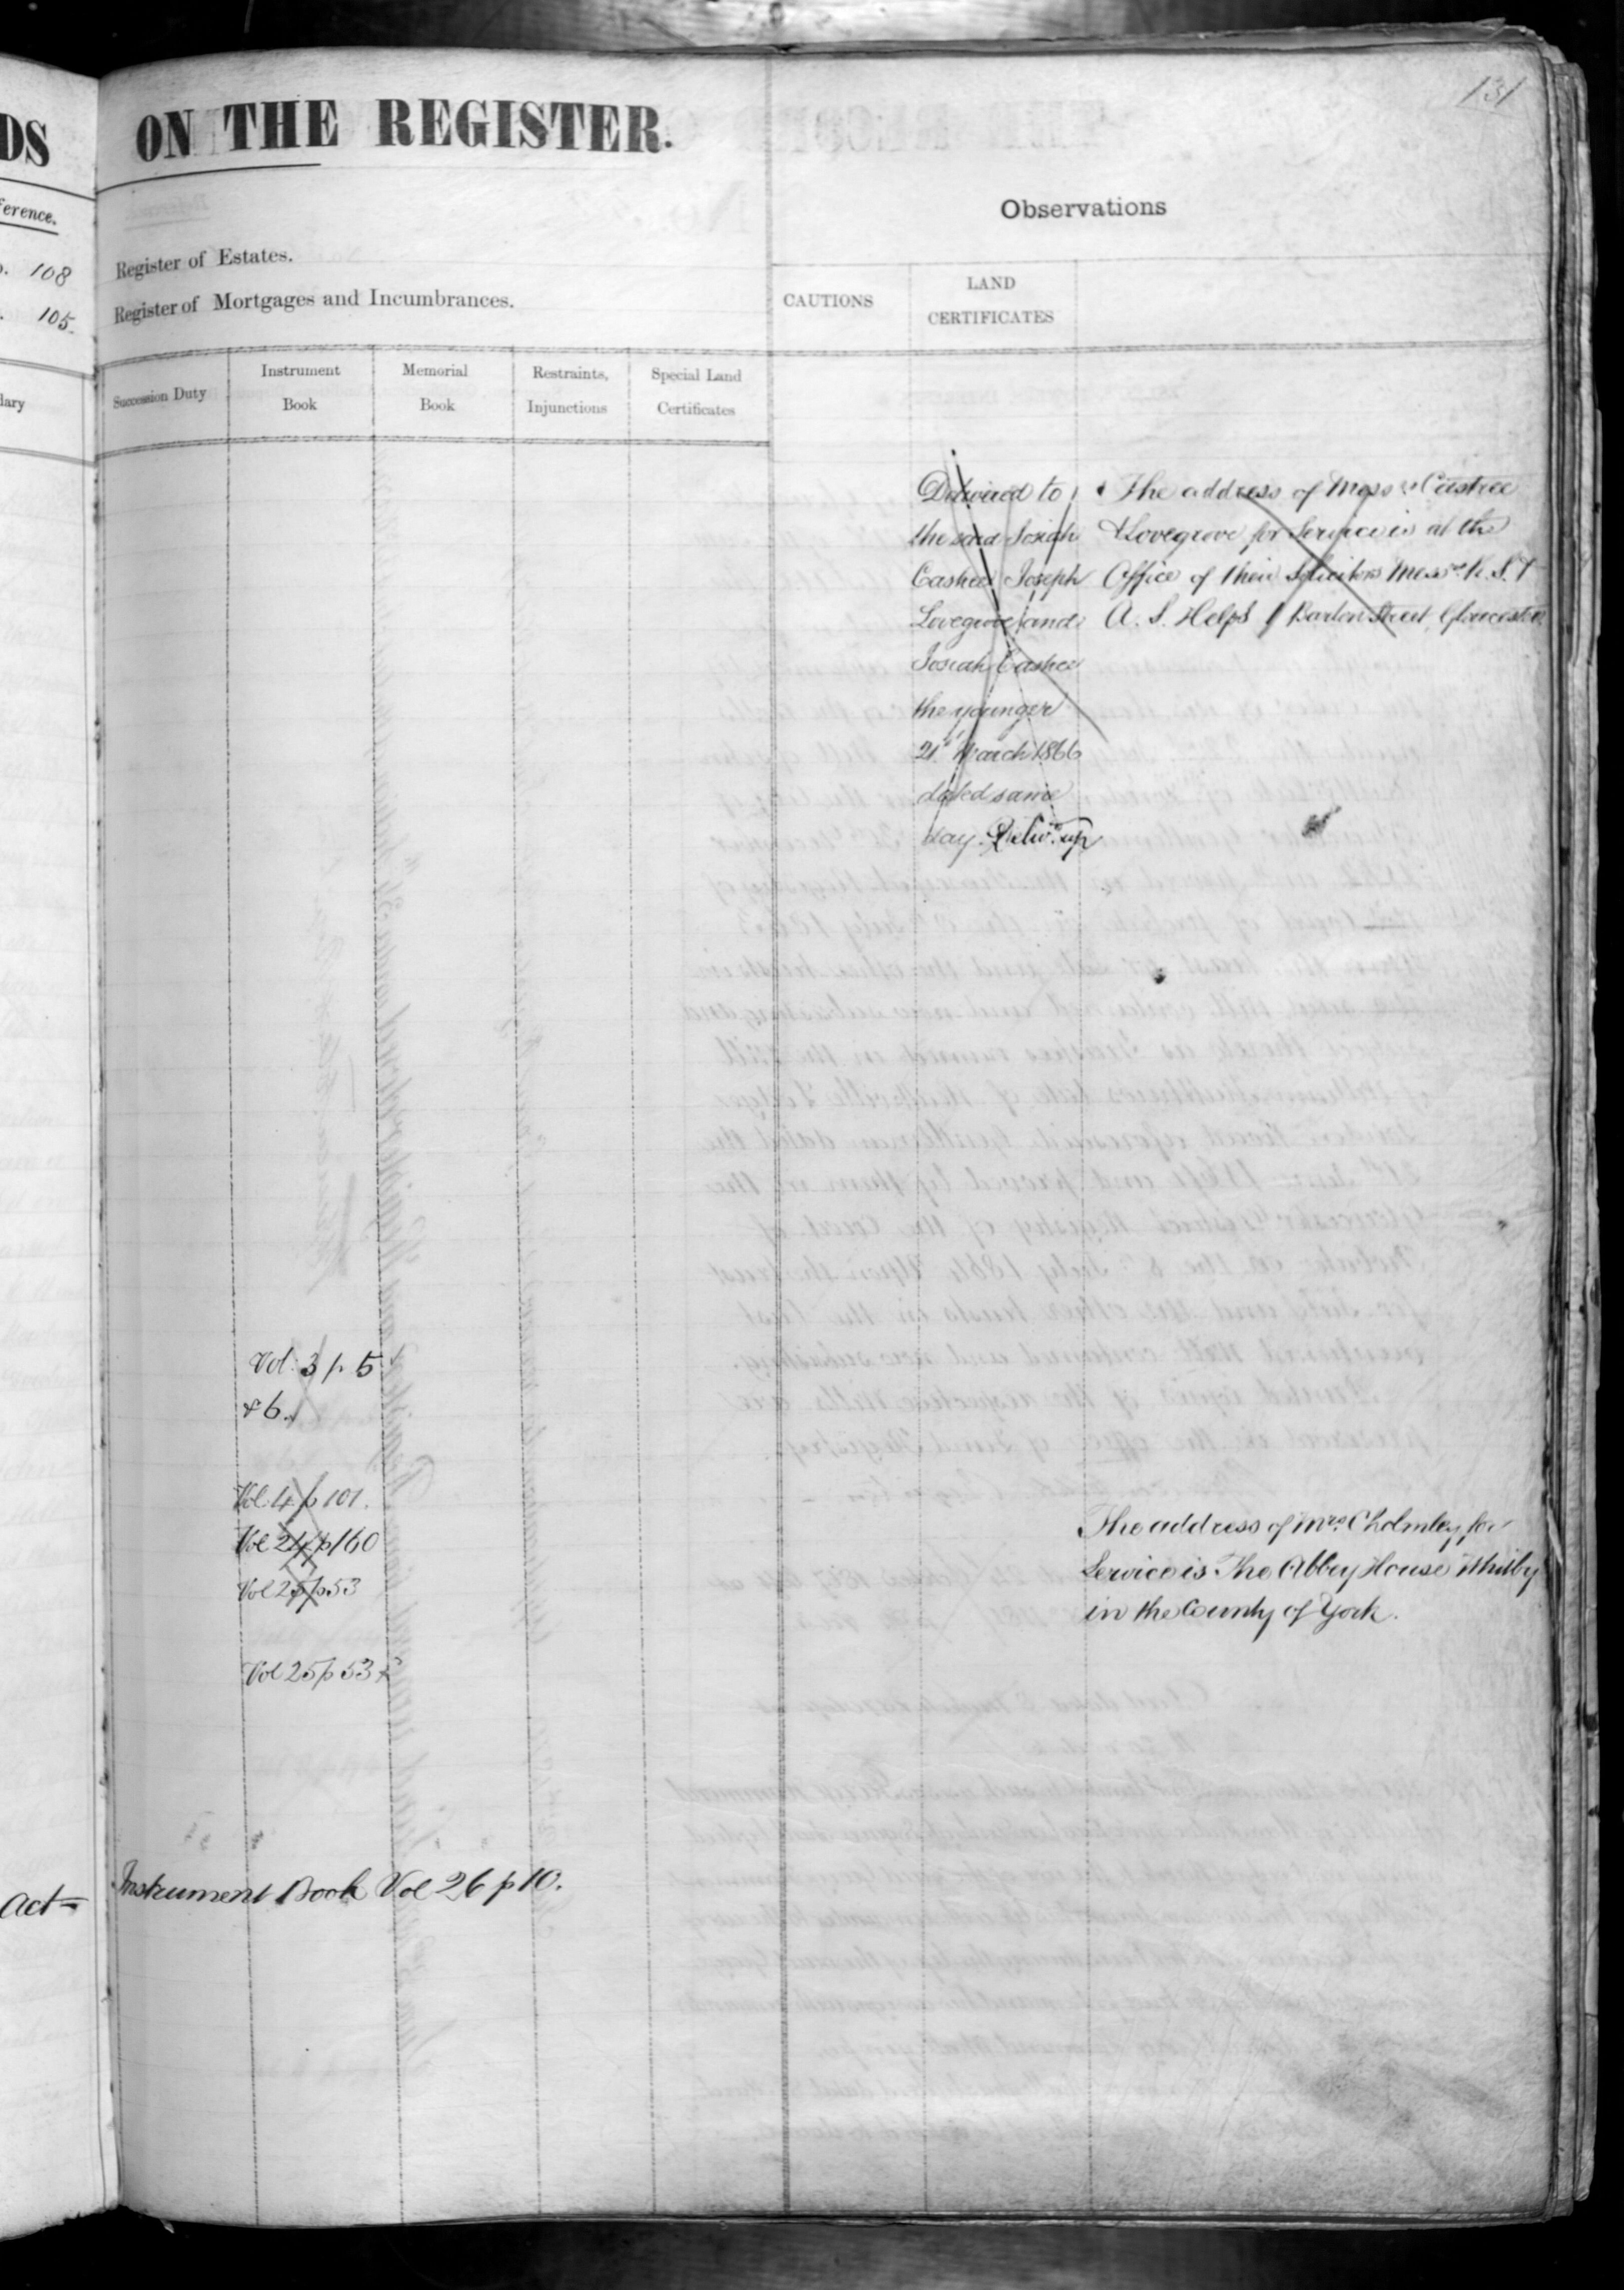 131
DS
ON THE REGISTER.
ference.
108
105.
Register of Estates.
Register of Mortgages and Incumbrances.
Observations
CAUTIONS
LAND
CERTIFICATES
dary
Succession Duty
Instrument
Book
Memorial
Book
Restraints,
Injunctions
Special Land
Certificates
Delivered to
the said Josiah
Castree Joseph
Lovegrove and
Josiah Castree
the younger
21st March 1866
dated same
day. Delivd. up
The address of Messrs Castree
& Lovegrove for Service is at the
Office of their Solicitors Messrs R. S. &
A. S. Helps 1 Barton Street, Gloucester.
Vol. 3 p. 5
& 6.
Vol 4 p 101.
Vol 24 p 160
Vol 25 p 53
Vol 25 p 53
The address of Mrs. Cholmley for
Service is The Abbey House Whitby
in the County of York.
Act =
Instrument Book Vol 26 p 10.